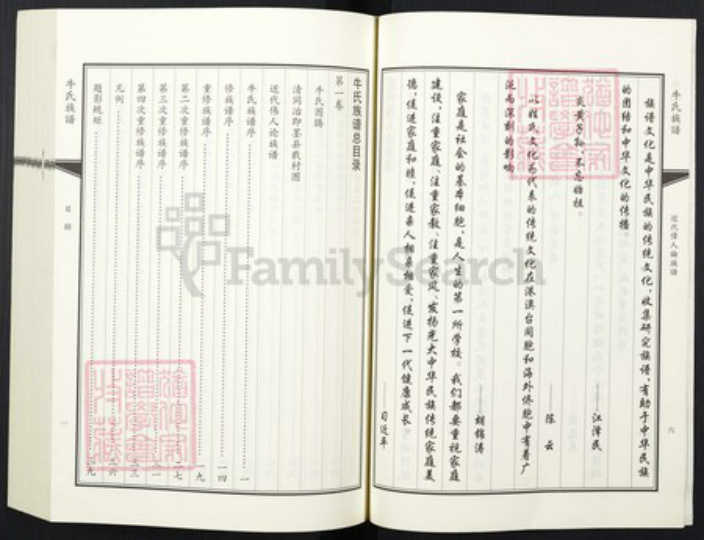 牛氏族谱
近代伟人论族谱
六
族谱文化是中华民族的传统文化，收集研究族谱，有助于中华民族
的团结和中华文化的传播。
——江泽民
炎黄子孙，不忘始祖。
——陈云
以姓氏文化为代表的传统文化在港澳台同胞和海外侨胞中有着广
泛而深刻的影响
——胡锦涛
家庭是社会的基本细胞，是人生的第一所学校。我们都要重视家庭
建设，注重家庭、注重家教、注重家风，发扬光大中华民族传统家庭美
德，促进家庭和睦，促进亲人相亲相爱，促进下一代健康成长。
——习近平
牛氏族谱总目录
第一卷
牛氏图腾
清同治即墨县载村图
近代伟人论族谱
牛氏族谱序 一
修族谱序 一四
重修族谱序 一九
第二次重修族谱序 二七
第三次重修族谱序
第四次重修族谱序
凡例
题影魏姓
牛氏族谱
目录
一
FamilySearch